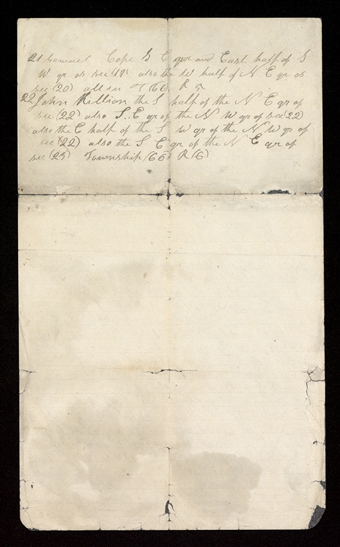 21 Samuel Cope S E qr and East half of S
W qr of sec (17) also the W half of N E qr of
sec (20) all in T (66) R 5
22 John Killion the S half of the N E qr of
sec (22) also S. E qr of the N W qr of sec 22)
also the E half of the S W qr of the N W qr of
sec (22) also the S E qr of the N E qr of
sec (25) Township (66) R (6)